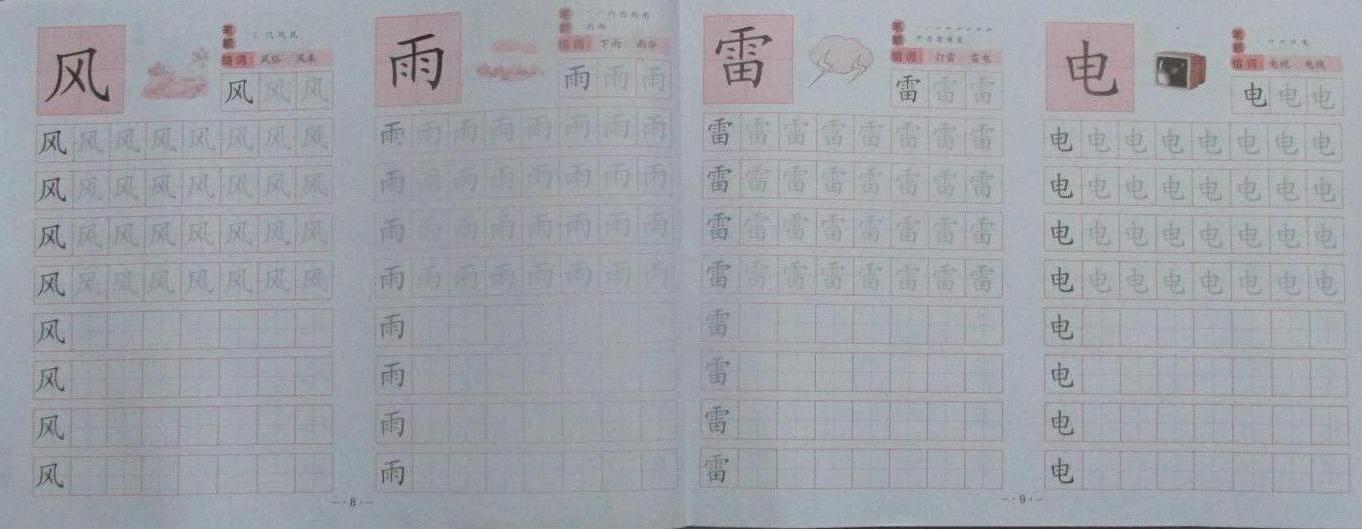 风
笔顺
组词 风俗 风车
风 风 风
风 风 风 风 风 风 风 风
风 风 风 风 风 风 风 风
风 风 风 风 风 风 风 风
风 风 风 风 风 风 风 风
风
风
风
风
雨
笔顺
组词 下雨 雨伞
雨 雨 雨
雨 雨 雨 雨 雨 雨 雨 雨
雨 雨 雨 雨 雨 雨 雨 雨
雨 雨 雨 雨 雨 雨 雨 雨
雨 雨 雨 雨 雨 雨 雨 雨
雨
雨
雨
雨
—·8·—
雷
笔顺
组词 打雷 雷电
雷 雷 雷
雷 雷 雷 雷 雷 雷 雷 雷
雷 雷 雷 雷 雷 雷 雷 雷
雷 雷 雷 雷 雷 雷 雷 雷
雷 雷 雷 雷 雷 雷 雷 雷
雷
雷
雷
雷
电
笔顺
组词 电视 电线
电 电 电
电 电 电 电 电 电 电 电
电 电 电 电 电 电 电 电
电 电 电 电 电 电 电 电
电 电 电 电 电 电 电 电
电
电
电
电
—·9·—